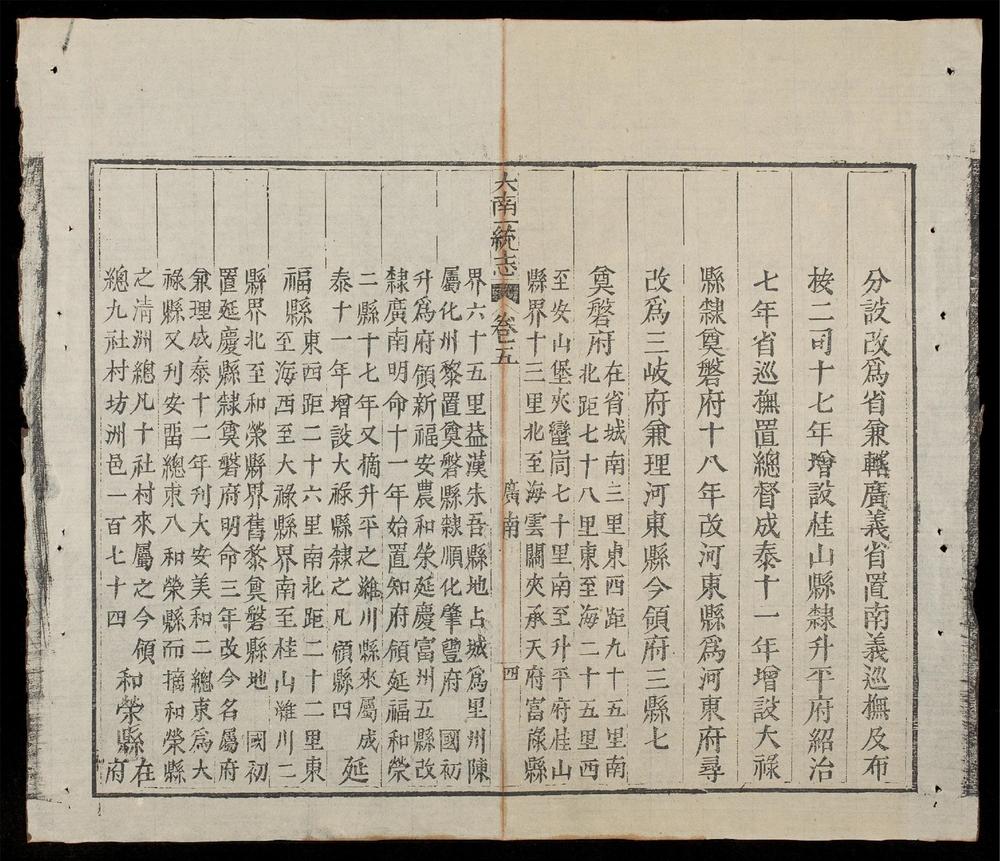 分設改爲省兼轄廣義省置南義巡撫及布
按二司十七年增設桂山縣隸升平府紹治
七年省巡撫置總督成泰十一年增設大祿
縣隸奠磐府十八年改河東縣爲河東府尋
改爲三岐府兼理河東縣今領府三縣七
奠磐府
在省城南三里東西距九十五里南
北距七十八里東至海二十五里西
至安山堡夾蠻峝七十里南至升平府桂山
縣界十三里北至海雲關夾承天府富祿縣
大南一統志
卷之五
廣南
四
界六十五里益漢朱吾縣地占城爲里州陳
屬化州黎置奠磐縣隸順化肇豐府 國初
升爲府領新福安農和荣延慶富州五縣改
隸廣南明命十一年始置知府領延福和榮
二縣十七年又摘升平之濰川縣來屬成
泰十一年增設大祿縣隸之凡領縣四
延
福縣
東西距二十六里南北距二十二里東
至海西至大祿縣界南至桂山濰川二
縣界北至和榮縣界舊黎奠磐縣地 國初
置延慶縣隸奠磐府明命三年改今名屬府
兼理成泰十二年刋大安美和二總東爲大
祿縣又刋安畱總東八和榮縣而摘和榮縣
之清洲總凡十社村來屬之今領
總九社村坊洲邑一百七十四
和榮縣
在
府